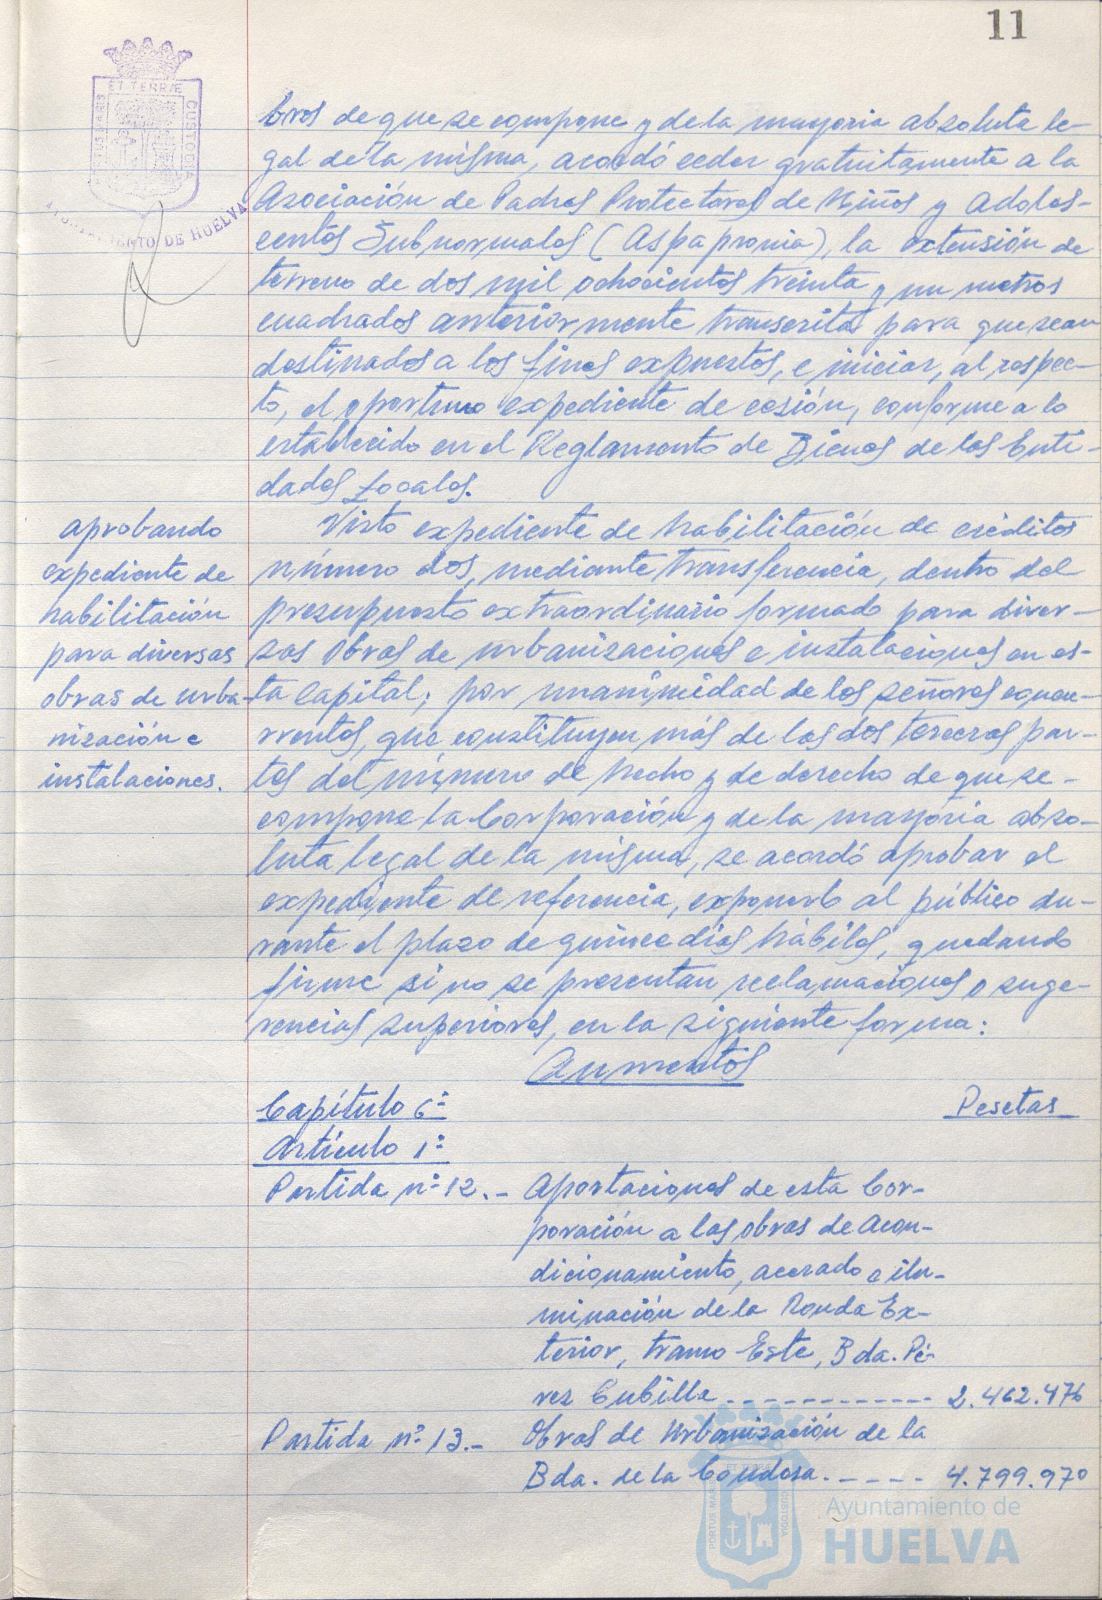 11
ET TERRÆ
CUSTODIA
AYUNTAMIENTO DE HUELVA
bros de que se compone y de la mayoria absoluta le-
gal de la misma, acordó ceder gratuitamente a la
Asociación de Padres Protectores de Niños y Adoles-
centes Subnormales (Aspapronia), la extensión de
terreno de dos mil ochocientos treinta y un metros
cuadrados anteriormente transcrita para que sean
destinados a los fines expuestos, e iniciar, al respec-
to, el oportuno expediente de cesión, conforme a lo
establecido en el Reglamento de Bienes de las Enti-
dades Locales.
aprobando
expediente de
habilitación
para diversas
obras de urba-
nización e
instalaciones.
Visto expediente de habilitación de créditos
número dos, mediante transferencia, dentro del
presupuesto extraordinario formado para diver-
sas obras de urbanizaciones e instalaciones en es-
ta capital; por unanimidad de los señores concu-
rrentes, que constituyen más de las dos terceras par-
tes del número de hecho y de derecho de que se
compone la Corporación y de la mayoría abso-
luta legal de la misma, se acordó aprobar el
expediente de referencia, exponerlo al público du-
rante el plazo de quince dias hábiles, quedando
firme si no se presentan reclamaciones o suge-
rencias superiores, en la siguiente forma:
Aumentos
Capítulo 6º
Pesetas
Artículo 1º
Partida nº 12.- Aportaciones de esta Cor-
poración a las obras de Acon-
dicionamiento, acerado e ilu-
minación de la Ronda Ex-
terior, tramo Este, Bda. Pé-
rez Cubilla ------------ 2.462.476
Partida nº 13.- Obras de Urbanización de la
Bda. de la Condesa. ----- 4.799.970
PORTUS MARIS
ET TERRÆ
CUSTODIA
Ayuntamiento de
HUELVA